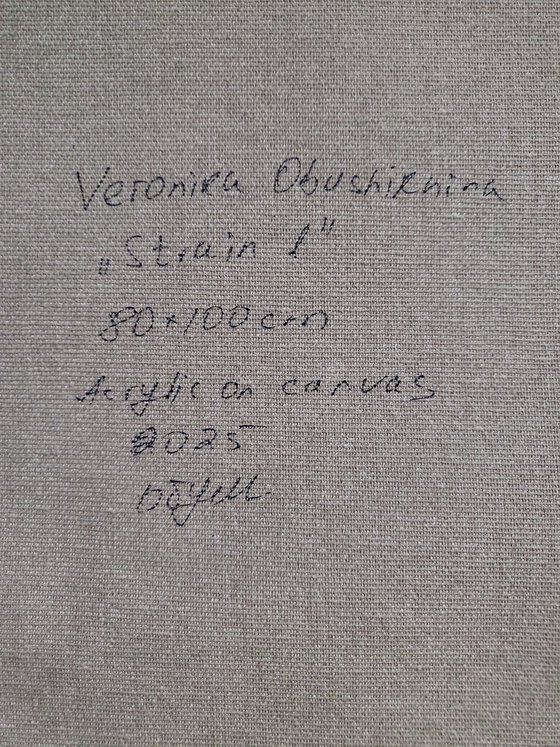 Veronika Obushiknina
„Strain 1"
80x100 cm
Acrylic on canvas
2025